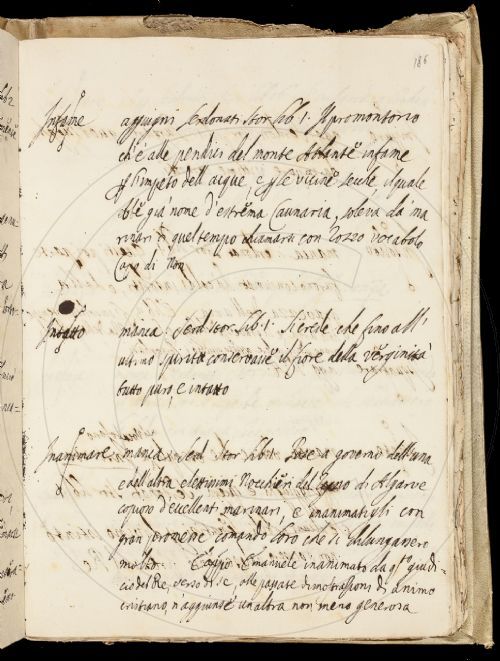 186
Infame aggiugni Serdonati Stor. Lib. 1. Il promontorio
ch'è alle pendici del monte Atlante infame
p l'impeto dell'acque, e p le vicine secche il quale
bbe già nome d'estrema Caunaria, soleva da ma
rinari quel tempo chiamarsi con rozzo vocabolo
Capo di Non
Intatto manca. Serd. Stor. Lib. 1. Si crede che fino all'
ultimo spirito conservasse il fiore della verginità
tutto puro, e intatto
Inanimare manca Serd. Stor. Lib. 1. Pose a governo dell'una
e dell'altra elettissimi Nocchieri del di Algarve
copioso d'eccellenti marinari, e inanimatigli con
gran promesse comandò loro che si dilungassero
molto. Emanuele inanimato da qto giudi
cio del Re, verso di se, alle passate dimostrazioni di animo
cristiano, n'aggiunse un'altra non meno generosa